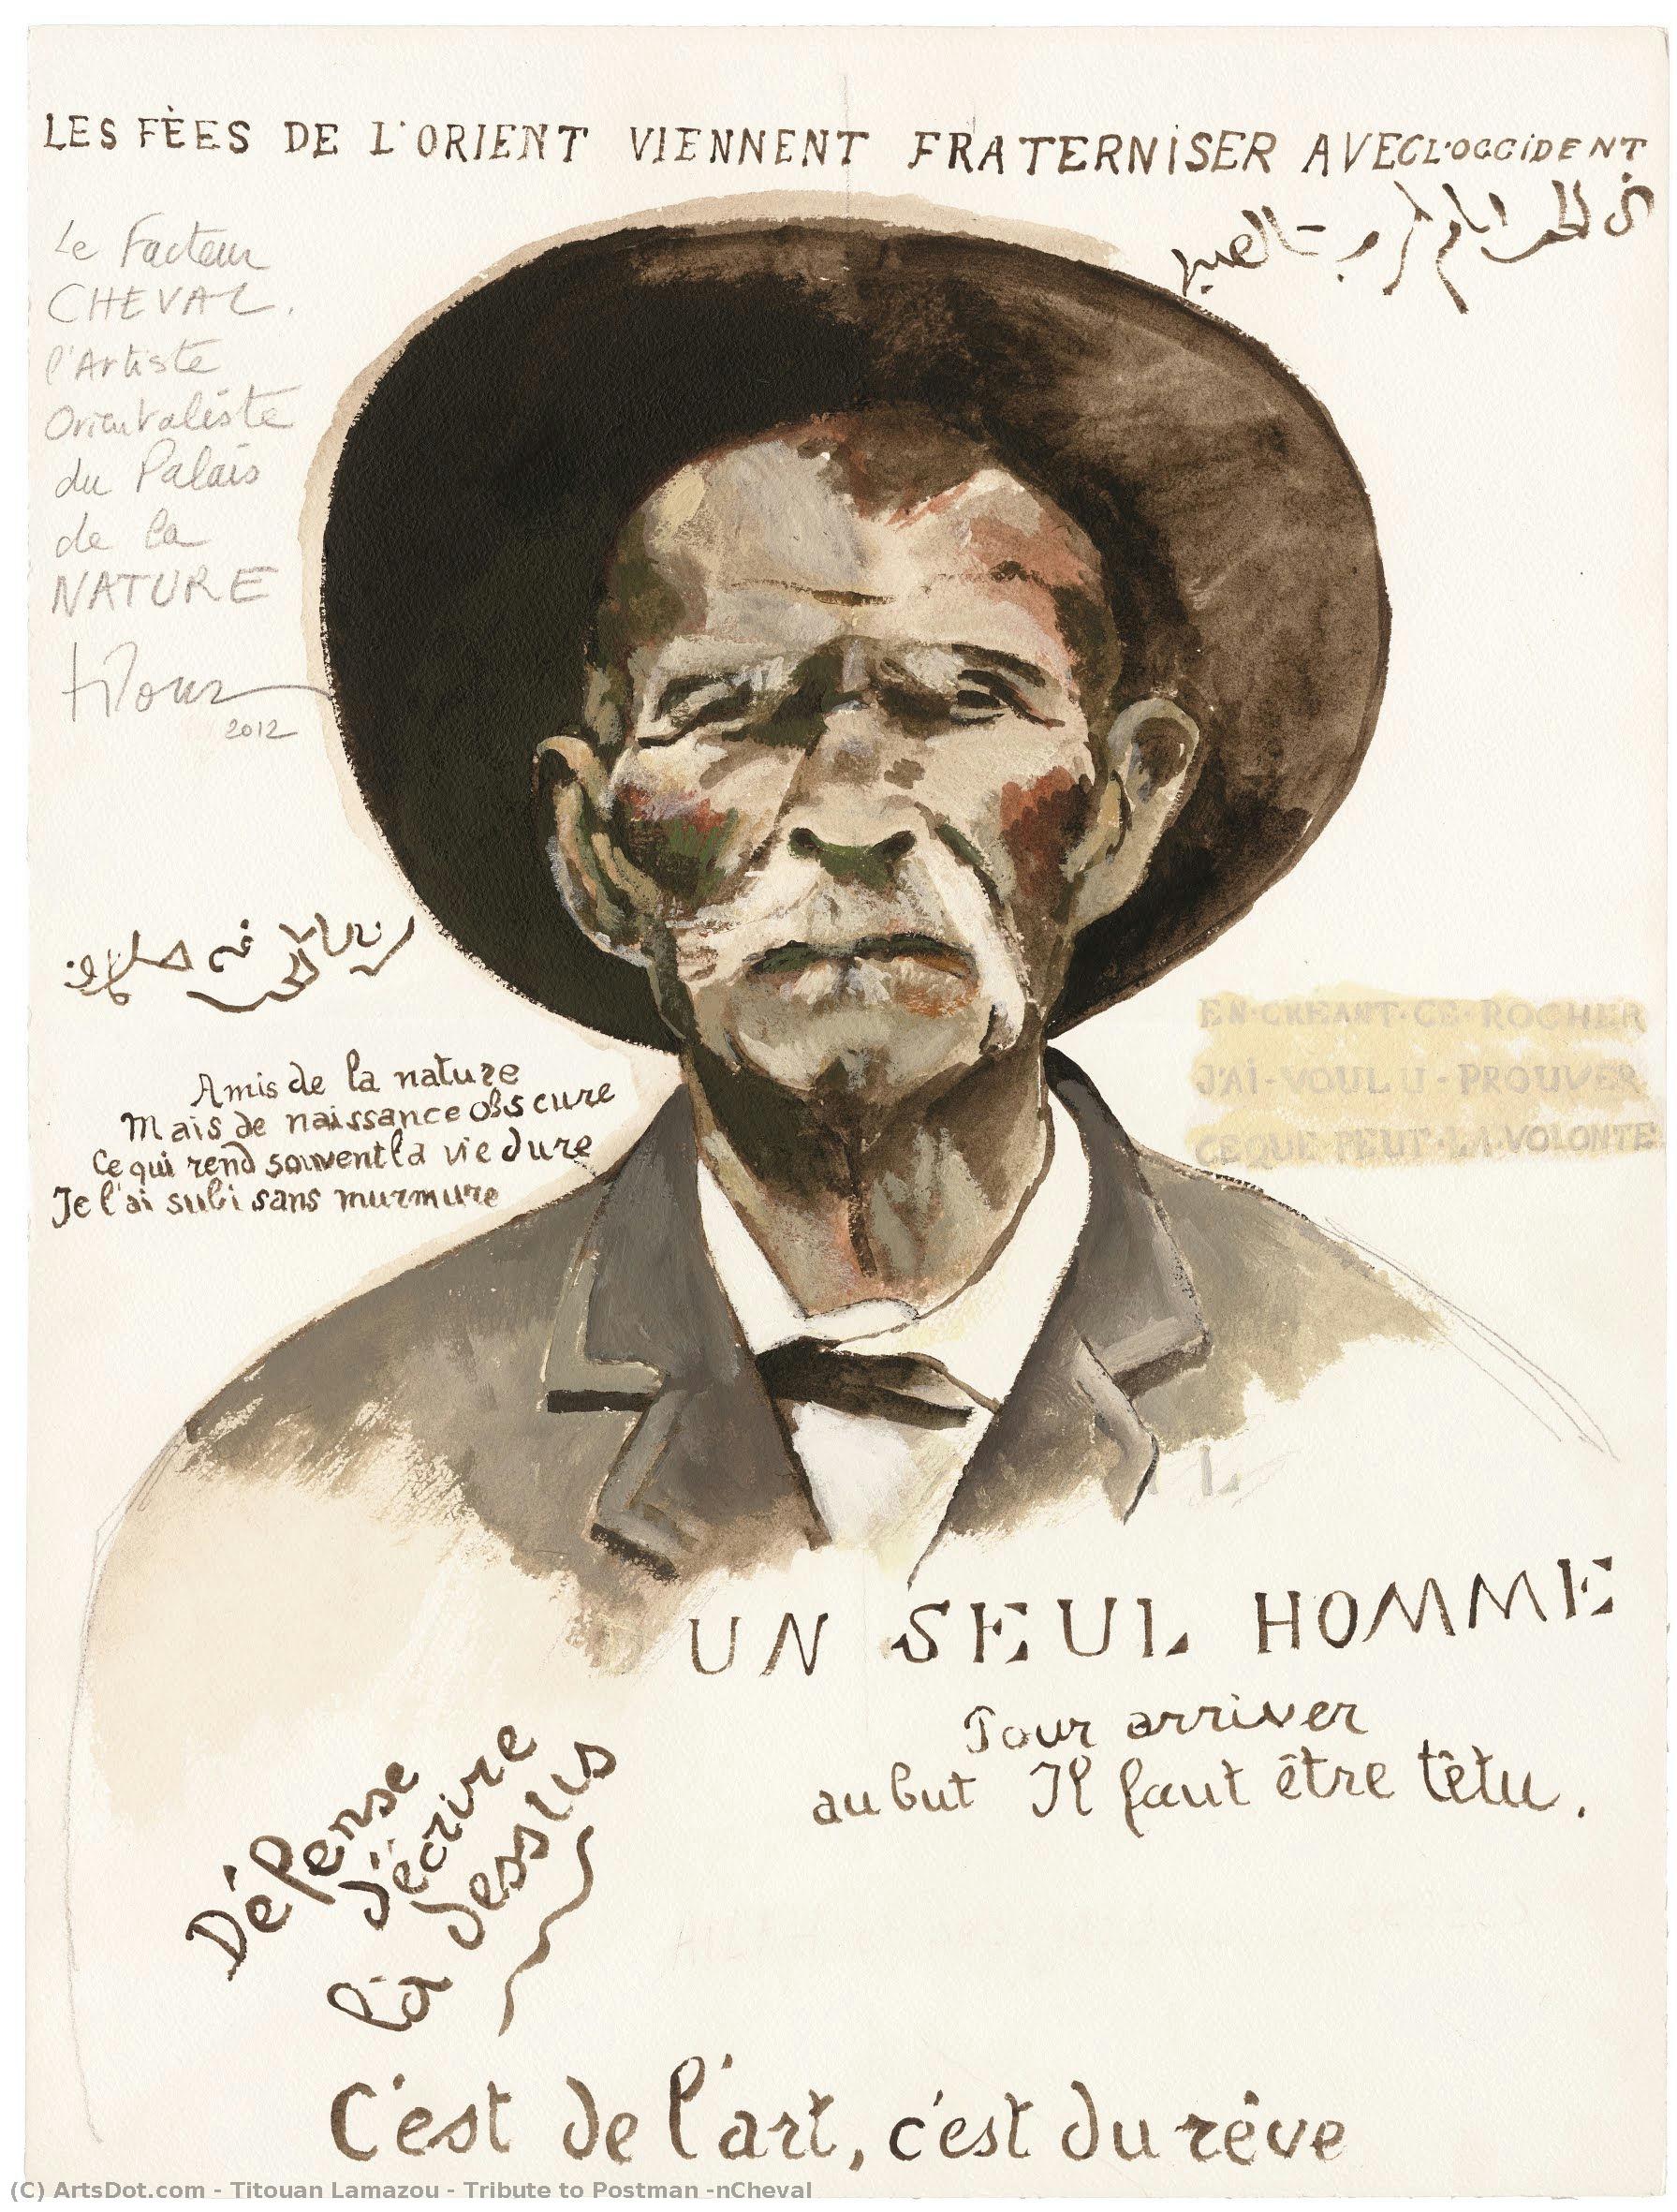 LES FÈES DE L'ORIENT VIENNENT FRATERNISER AVEC L'OCCIDENT
Le Facteur
CHEVAL.
l'Artiste
Orientaliste
du Palais
de la
NATURE
2012
Amis de la nature
Mais de naissance obscure
Ce qui rend souvent la vie dure
Je l'ai subi sans murmure
EN·CREANT·CE·ROCHER
J'AI-VOULU-PROUVER
CE QUE PEUT·LA VOLONTE
L
UN SEUL HOMME
Pour arriver
au but Il faut être têtu.
Dépense
d'écrire
là dessus
C'est de l'art, c'est du rêve
(C) ArtsDot.com - Titouan Lamazou - Tribute to Postman -nCheval